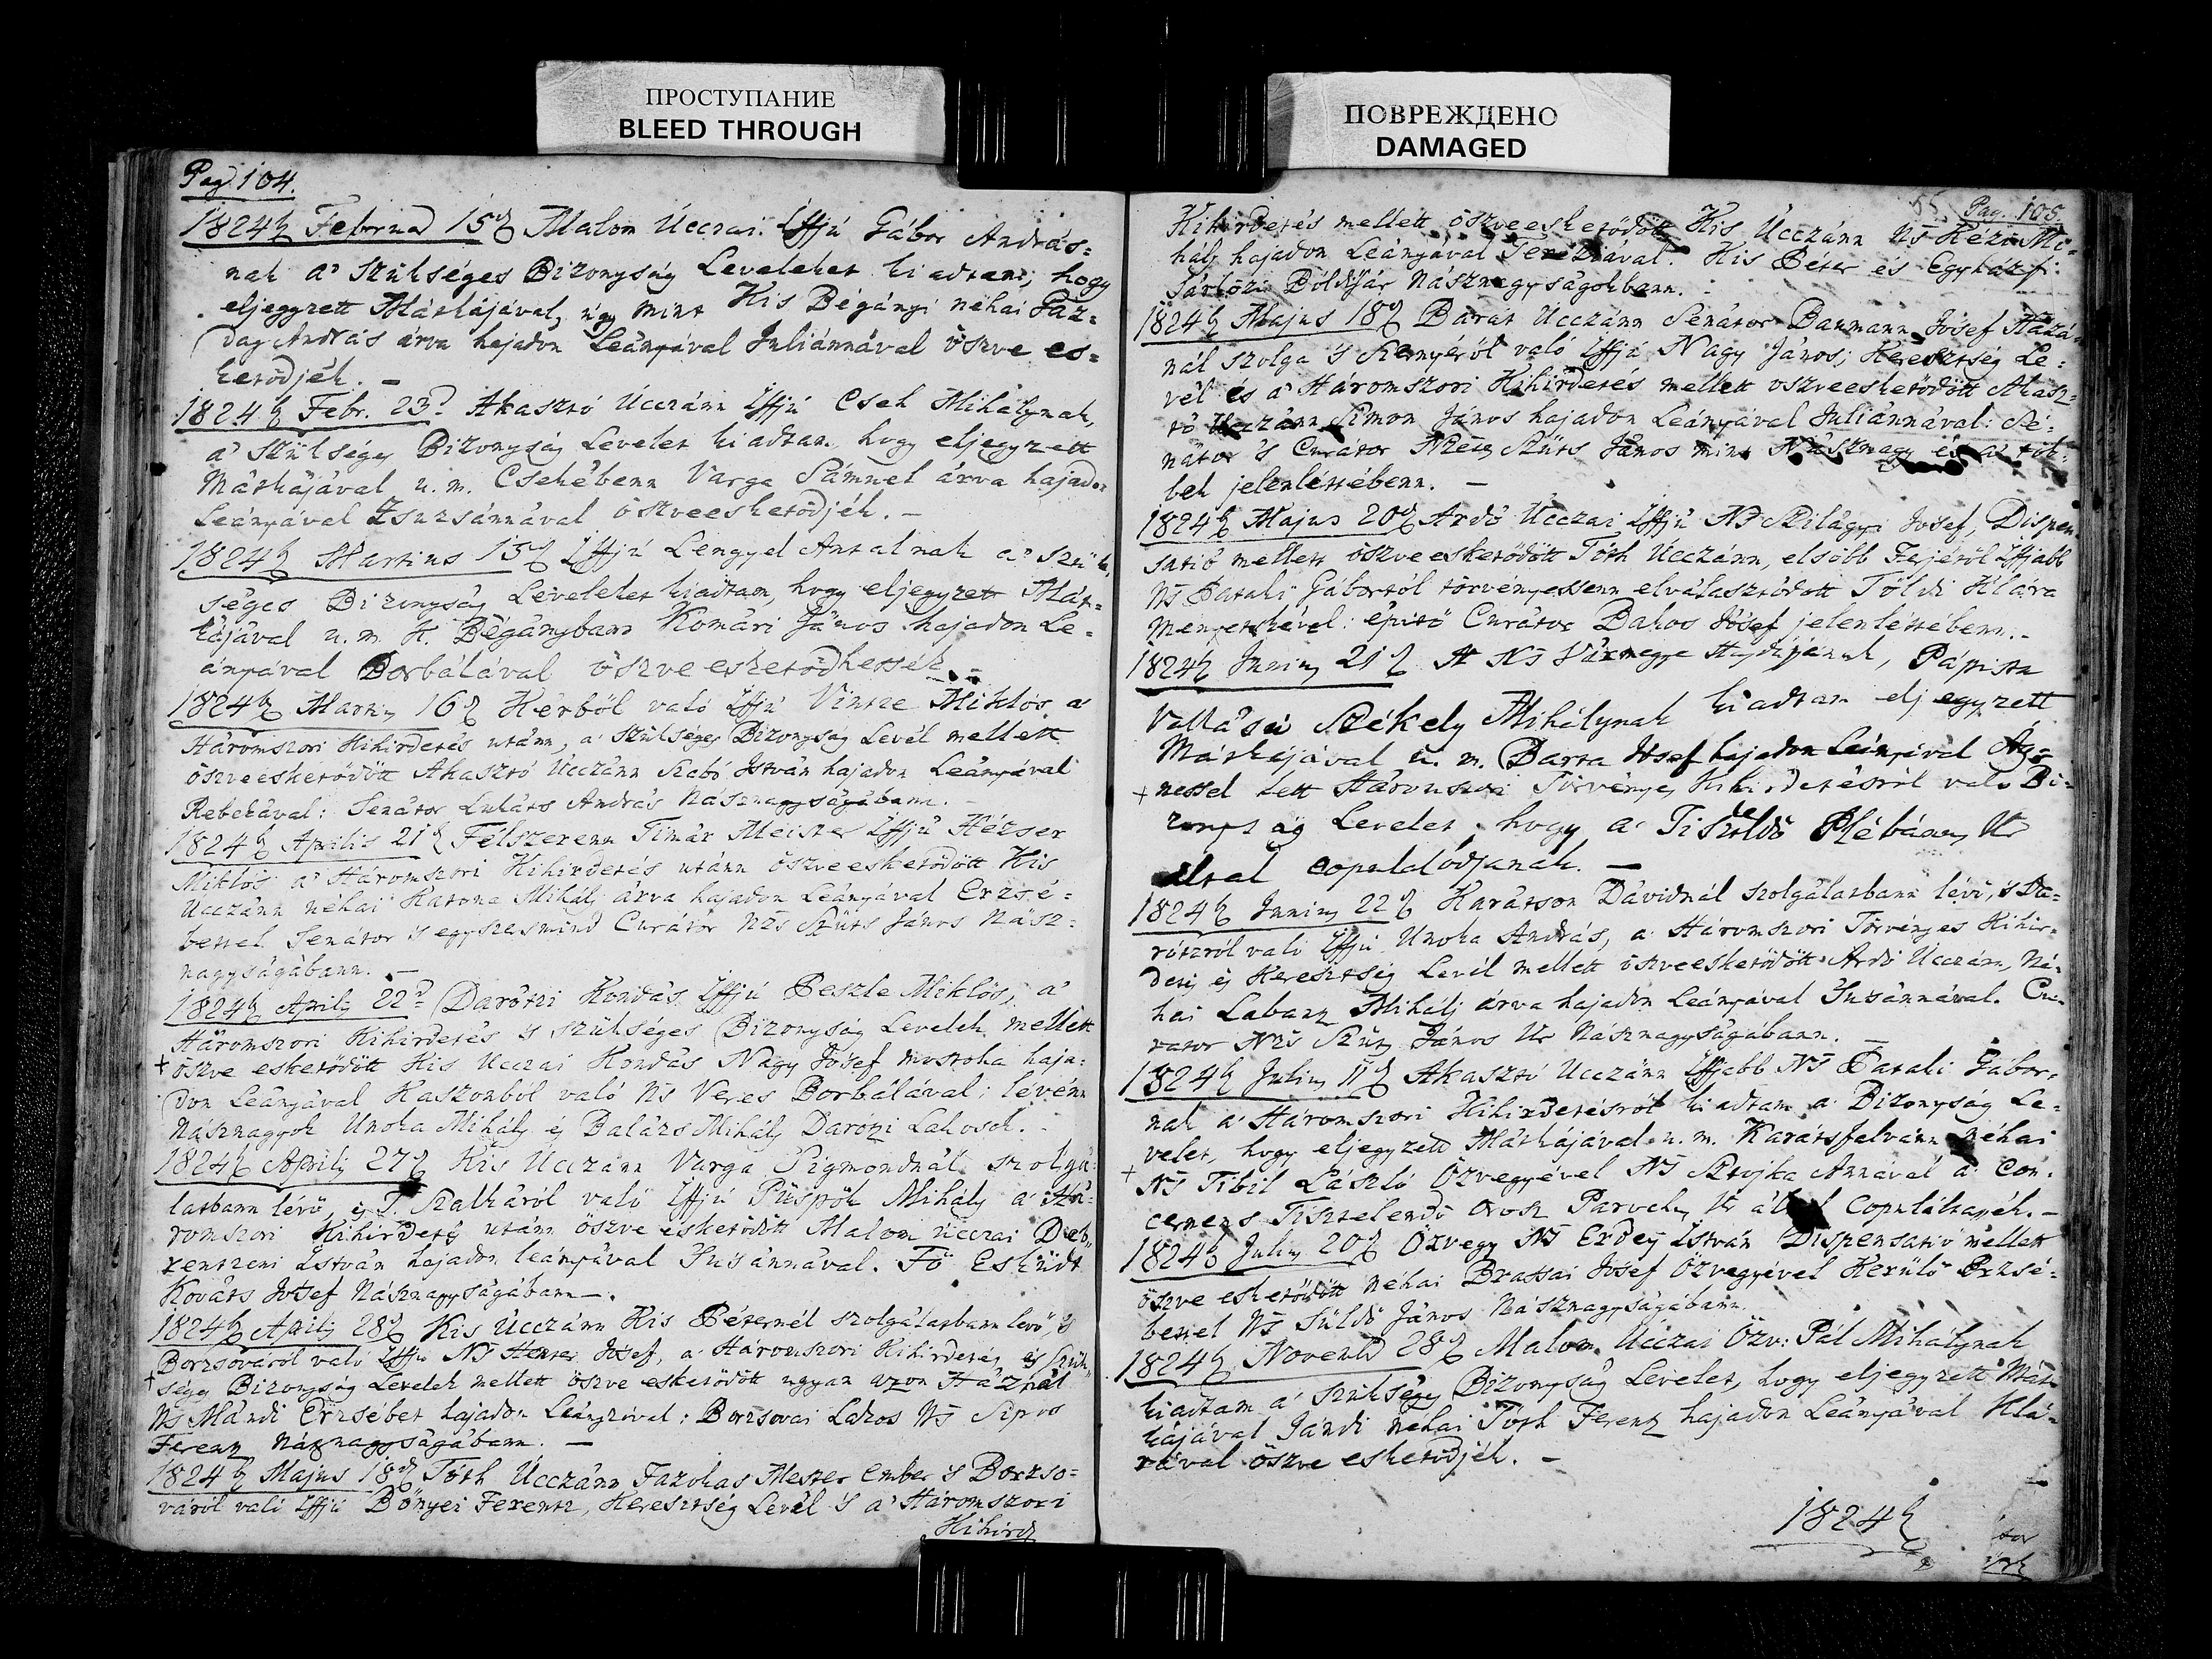 ПРОСТУПАНИЕ
BLEED THROUGH
ПОВРЕЖДЕНО
DAMAGED
Pag. 104.
1824 Februar 15 Malom Ucczai Iffjú Gábor András=
nak a' szükséges Bizonyság Leveleket ki adtam, hogy
eljegyzett Mátkájával, úgy mint Kis Bégányi néhai Páz=
day András árva hajadon Leányával Juliánnával öszve es=
ketődjék. –
1824 Febr. 23 Akasztó Ucczánn Iffjú Cseh Mihálynak,
a' szükséges Bizonyság Levelet kiadtam, hogy eljegyzett
Mátkájával u. m. Csehébenn Varga Sámuel árva hajadon
Leányával Zsuzsánnával öszveeskетődjék. –
1824 Martius 15 Iffjú Lengyel Antalnak a' szük
séges Bizonyság Leveleket kiadtam, hogy eljegyzett Mát=
kájával u. m. K. Bégánybann Komári János hajadon Le=
ányával Borbálával öszve esketődhessék. –
1824 Martius 16 Kérből való Iffjú Vintze Miklós a'
Háromszori Kihirdetés utánn, a' szükséges Bizonyság Levél mellett
öszveesketődött Akasztó Ucczánn Szabó István hajadon Leányával
Rebekával: Senátor Lukáts András Násznagyságábann. –
1824 Aprilis 21 Félszerenn Timár Meister Iffjú Hézser
Miklós a' Háromszori Kihirdetés utánn öszveesketődött Kis
Ucczánn néhai Katona Mihály árva hajadon Leányával Erzsé=
bettel Senátor 's egyszersmind Curátor Nzs Szűts János Nász=
nagyságábann. –
1824 Aprilis 22 Darótzi Kondás Iffjú Peszle Miklós, a'
Háromszori Kihirdetés 's szükséges Bizonyság Levelek mellett
+ öszve esketődött Kis Ucczai Kondás Nagy Josef mostoha haja=
don Leányával Kaszonból való Ns Veres Borbálával; lévénn
Násznagyok Unoka Mihály és Balázs Mihály Darózi Lakosok. –
1824 Aprilis 27 Kis Ucczánn Varga Sigmondnál szolgá=
latbann lévő, és T. Szalkáról való Iffjú Püspök Mihály a' Há=
romszori Kihirdetés utánn öszve esketődött Malom Ucczai Deb=
rentzeni István hajadon leányával Susánnával. Fő Esküdt
Kováts Josef Násznagyságábann –.
1824 Aprilis 28 Kis Ucczánn Kis Péternél szolgálatbann lévő, 's
Borzsováról való Iffjú Ns Josef, a' Háromszori Kihirdetés és szük=
+ séges Bizonyság Levelek mellett öszve esketődött ugyan azon Háznál
Ns Mándi Erzsébet hajadon Leányzóval: Borzsovai Lakos Ns Sipos
Ferentz Násznagyságábann. –
1824 Majus 18 Tóth Ucczánn Fazokas Mester Ember 's Borzso=
váról való Iffjú Bőnyei Ferentz, Keresztség Levél 's a' Háromszori
Kihird
55. Pag. 105.
Kihirdetés mellett öszveesketődött Kis Ucczánn Ns Kézi Mi=
hály hajadon Leányával Teréziával. Kis Péter és Egyházfi
Sárközi Bóldisár Násznagyságokbann. –
1824 Majus 18 Barát Ucczánn Senátor Baumann Josef Házá=
nál szolga 's Szernyéről való Iffjú Nagy János; Keresztség Le=
vél és a' Háromszori Kihirdetés mellett öszveesketődött Akasz=
tó Ucczánn Simon János hajadon Leányával Juliánnával: Se=
nátor 's Curátor Szűts János mint Násznagy és a' töb=
bek jelenlétтébenn. –
1824 Majus 20 Ardó Ucczai Iffjú Ns Szilágyi Josef, Dispen
satió mellett öszveesketődött Tóth Ucczánn, elsőbb Férjétől Iffjabb
Ns Pataki Gábortól törvényessenn elválasztódott Földi Klára
Menyetskével: épitő Curátor Bakos Jósef jelenléttébenn. –
1824 Junius 21 A' Ns Vármegye Hajdujának, Pápista
Vallású Székely Mihálynak kiadtam eljegyzett
Mátkájával u. m. Barta Josef hajadon Leányával Ág=
+ nessel lett Háromszori Törvényes Kihirdetésről való Bi=
zonyság Levelet, hogy a' Tisztelendő Plébánus Úr
által copulalódjanak. –
1824 Junius 22 Karátson Dávidnál szolgálatbann lévő, 's Da=
rótzról való Iffjú Unoka András, a' Háromszori Törvényes Kihir=
detés és Keresztség Levél mellett öszveesketődött Ardó Ucczánn, Né=
hai Labanz Mihály árva hajadon Leányával Susánnával. Cu=
rator Nzs Szűts János Úr Násznagyságábann. –
1824 Julius 11 Akasztó Ucczánn Iffjabb Ns Pataki Gábor=
nak a' Háromszori Kihirdetésről kiadtam a' Bizonyság Le=
velet, hogy eljegyzett Mátkájával u. m. Karátsfalvánn néhai
+ Ns Tibil László Özvegyével Ns Sztojka Annával a' Con=
cernens Tisztelendő Orosz Parochus Úr által Copuláltassék. –
1824 Julius 20 Özvegy Ns Erdey István Dispensatio mellett
öszve esketődött néhai Brassai Josef Özvegyével Kerülő Erzsé=
bettel Ns Süldő János Násznagyságábann.
1824 Novembr 28 Malom Ucczai Özv: Pál Mihálynak
kiadtam a' szükséges Bizonyság Levelet, hogy eljegyzett Mát=
kájával Jándi néhai Tóth Ferentz hajadon Leányával Klá=
rával öszve esketődjék. –
1824